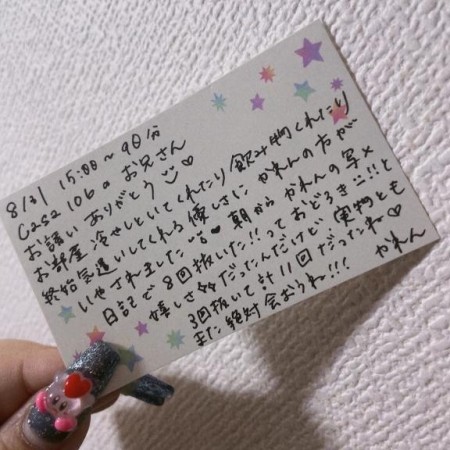 8/31 15:00〜90分
Casa 106のお兄さん
お誘いありがとう♡
お部屋冷やしといてくれたり飲み物くれたり
終始気遣いしてくれる優しさにかれんの方が
いやされました♡朝からかれんの写メ
日記で8回抜いた!!っておどろき!!!と
嬉しさだったんだけど実物とも
3回抜いて計11回だったね♡
また絶対会おうね!!! かれん